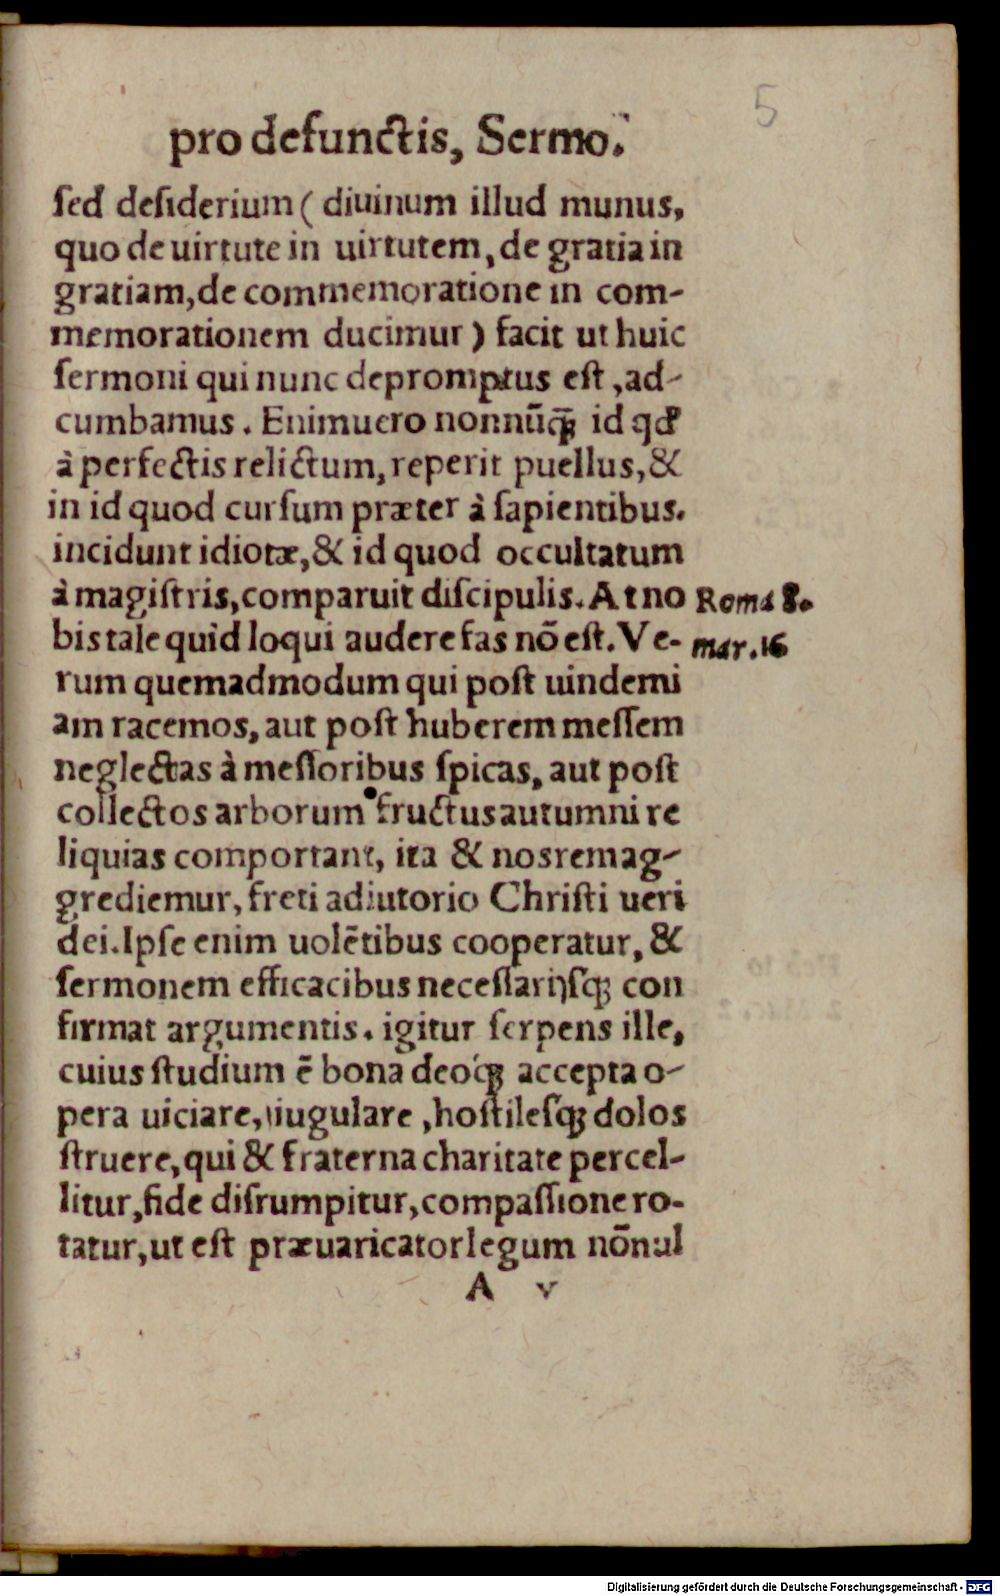 5
pro defunctis, Sermo.
ſed deſiderium ( diuinum illud munus,
quo de uirtute in uirtutem, de gratia in
gratiam, de commemoratione in com-
memorationem ducimur ) facit ut huic
ſermoni qui nunc depromptus eſt, ad-
cumbamus. Enimuero nonnūꝗ̃ id qđ
à perfectis relictum, reperit puellus, &
in id quod curſum præter à ſapientibus.
incidunt idiotæ, & id quod occultatum
à magiſtris, comparuit diſcipulis. At no
Romā 8.
bis tale quid loqui audere fas nō eſt. Ve-
mar. 16
rum quemadmodum qui poſt uindemi
am racemos, aut poſt huberem meſſem
neglectas à meſſoribus ſpicas, aut poſt
collectos arborum fructus autumni re
liquias comportant, ita & nos rem ag-
grediemur, freti adiutorio Chriſti ueri
dei. Ipſe enim uolētibus cooperatur, &
ſermonem efficacibus neceſſarijsq; con
firmat argumentis. igitur ſerpens ille,
cuius ſtudium ē bona deoq́; accepta o-
pera uiciare, iugulare, hoſtileſq; dolos
ſtruere, qui & fraterna charitate percel-
litur, fide diſrumpitur, compaſſione ro-
tatur, ut eſt præuaricator legum nōnul
A v
Digitalisierung gefördert durch die Deutsche Forschungsgemeinschaft - DFG